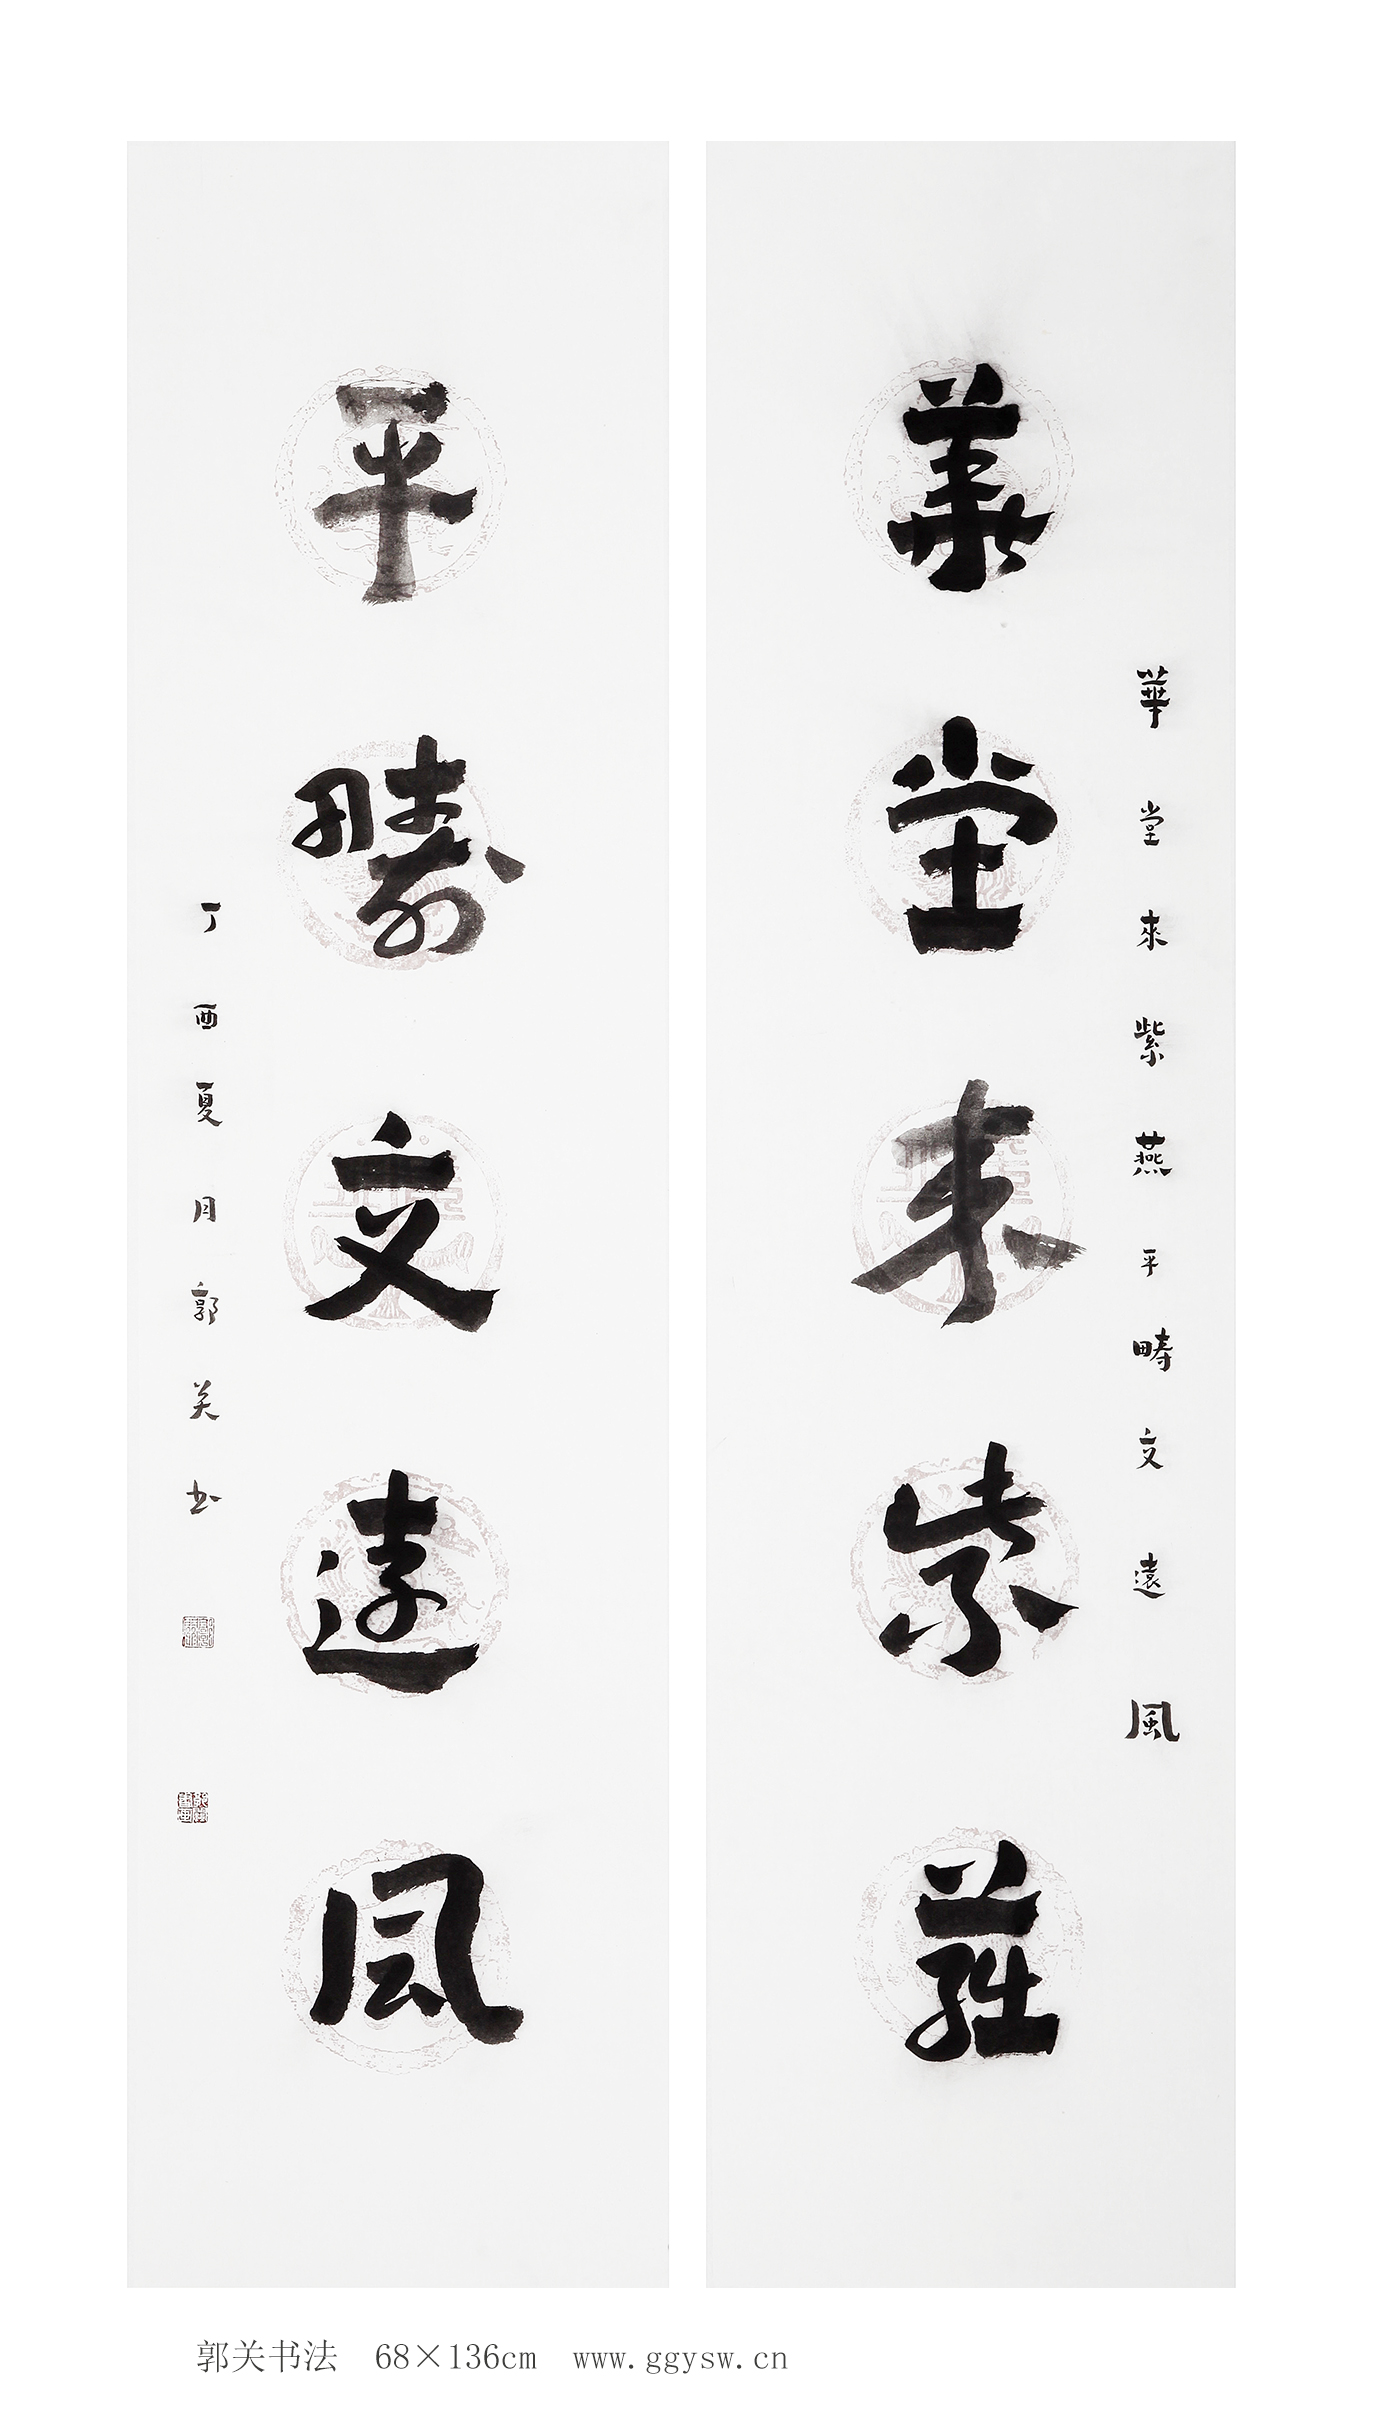 華堂來紫燕平畴交遠風
華堂来紫燕
平畴交遠風
丁酉夏月郭关书
郭关书法 68×136cm www.ggysw.cn